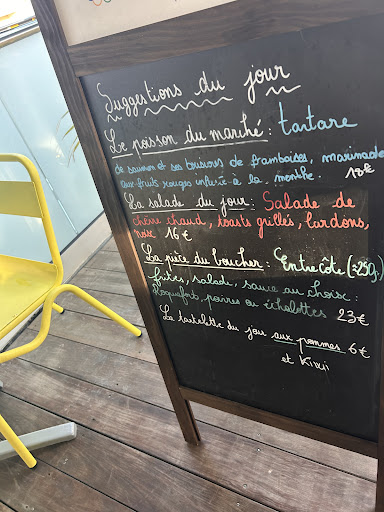 Suggestions du jour
Le poisson du marché : tartare
de saumon et ses brisures de framboises, marinade
aux fruits rouges infusée à la menthe. 18€
La salade du jour : Salade de
chèvre chaud, toasts grillés, lardons,
noix 16€
La pièce du boucher : Entrecôte (≈250g.)
frites, salade, sauce au choix :
Roquefort poivres ou échalottes 23€
La tartelette du jour aux pommes 6€
et Kiwi